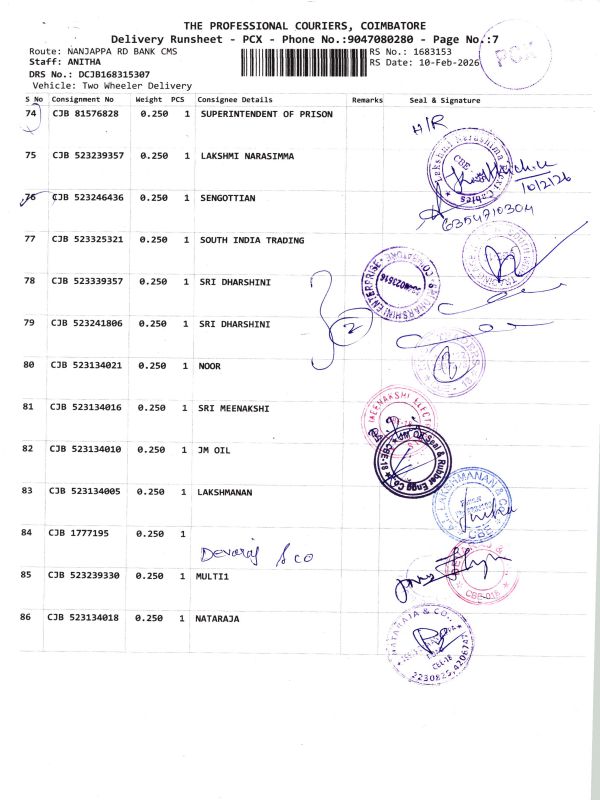 THE PROFESSIONAL COURIERS, COIMBATORE
Delivery Runsheet - PCX - Phone No.:9047080280 - Page No.:7
Route: NANJAPPA RD BANK CMS
RS No.: 1683153
Staff: ANITHA
RS Date: 10-Feb-2026
DRS No.: DCJB168315307
Vehicle: Two Wheeler Delivery
PCX
S No Consignment No Weight PCS Consignee Details Remarks Seal & Signature
74 CJB 81576828 0.250 1 SUPERINTENDENT OF PRISON
H/R
75 CJB 523239357 0.250 1 LAKSHMI NARASIMMA
Lakshmi Narasimma
CBE
Cables
10/2/26
76 CJB 523246436 0.250 1 SENGOTTIAN
6354710304
77 CJB 523325321 0.250 1 SOUTH INDIA TRADING
78 CJB 523339357 0.250 1 SRI DHARSHINI
79 CJB 523241806 0.250 1 SRI DHARSHINI
2
80 CJB 523134021 0.250 1 NOOR
81 CJB 523134016 0.250 1 SRI MEENAKSHI
MEENAKSHI ELECT
82 CJB 523134010 0.250 1 JM OIL
JM Oil Seal & Rubber Engg Co.
CBE-18
83 CJB 523134005 0.250 1 LAKSHMANAN
LAKSHMANAN & CO
CBE
84 CJB 1777195 0.250 1
Devaraj & co
85 CJB 523239330 0.250 1 MULTI1
CBE-018
86 CJB 523134018 0.250 1 NATARAJA
NATARAJA & CO.
CBE-18